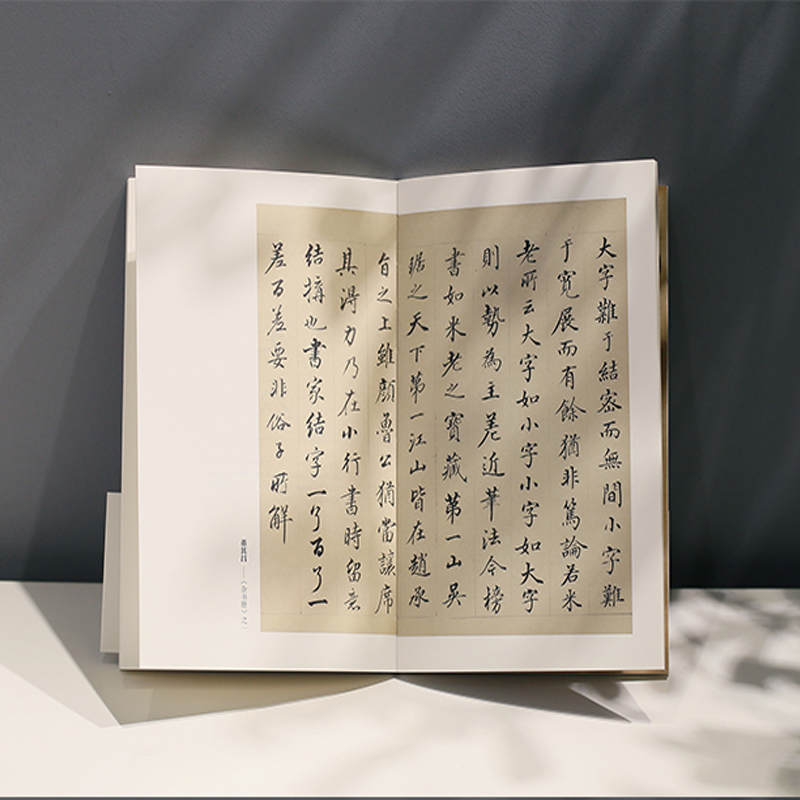 大字難于結密而無間小字難
于寬展而有餘猶非篤論若米
老所云大字如小字小字如大字
則以勢為主差近筆法今榜
書如米老之寶藏第一山吴
琚之天下第一江山皆在趙承
旨之上雖顔魯公猶當讓席
其得力乃在小行書時留意
結搆也書家結字一了百了一
差百差要非俗子所解
董其昌——《杂书册》之一